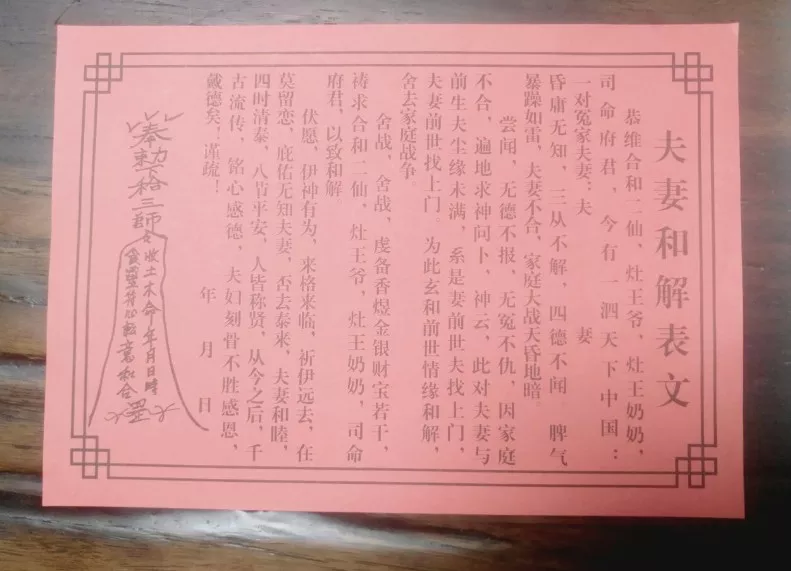 夫妻和解表文
恭维合和二仙，灶王爷，灶王奶奶，
司命府君，今有一泗天下中国：
一对冤家夫妻：夫　　　妻
昏庸无知，三从不解，四德不闻　脾气
暴躁如雷，夫妻不合，家庭大战天昏地暗。
尝闻，无德不报，无冤不仇，因家庭
不合，遍地求神问卜，神云，此对夫妻与
前生夫尘缘未满，系是妻前世夫找上门，
夫妻前世找上门。为此玄和前世情缘和解，
舍去家庭战争。
舍战，舍战，虔备香煜金银财宝若干，
祷求合和二仙，灶王爷，灶王奶奶，司命
府君，以致和解。
伏愿，伊神有为，来格来临，祈伊远去，在
莫留恋，庇佑无知夫妻，否去泰来，夫妻和睦，
四时清泰，八节平安，人皆称贤，从今之后，千
古流传，铭心感德，夫妇刻骨不胜感恩，
戴德矣！谨疏！
年　月　日
奉勅
三師
收土木命年月日時
和合